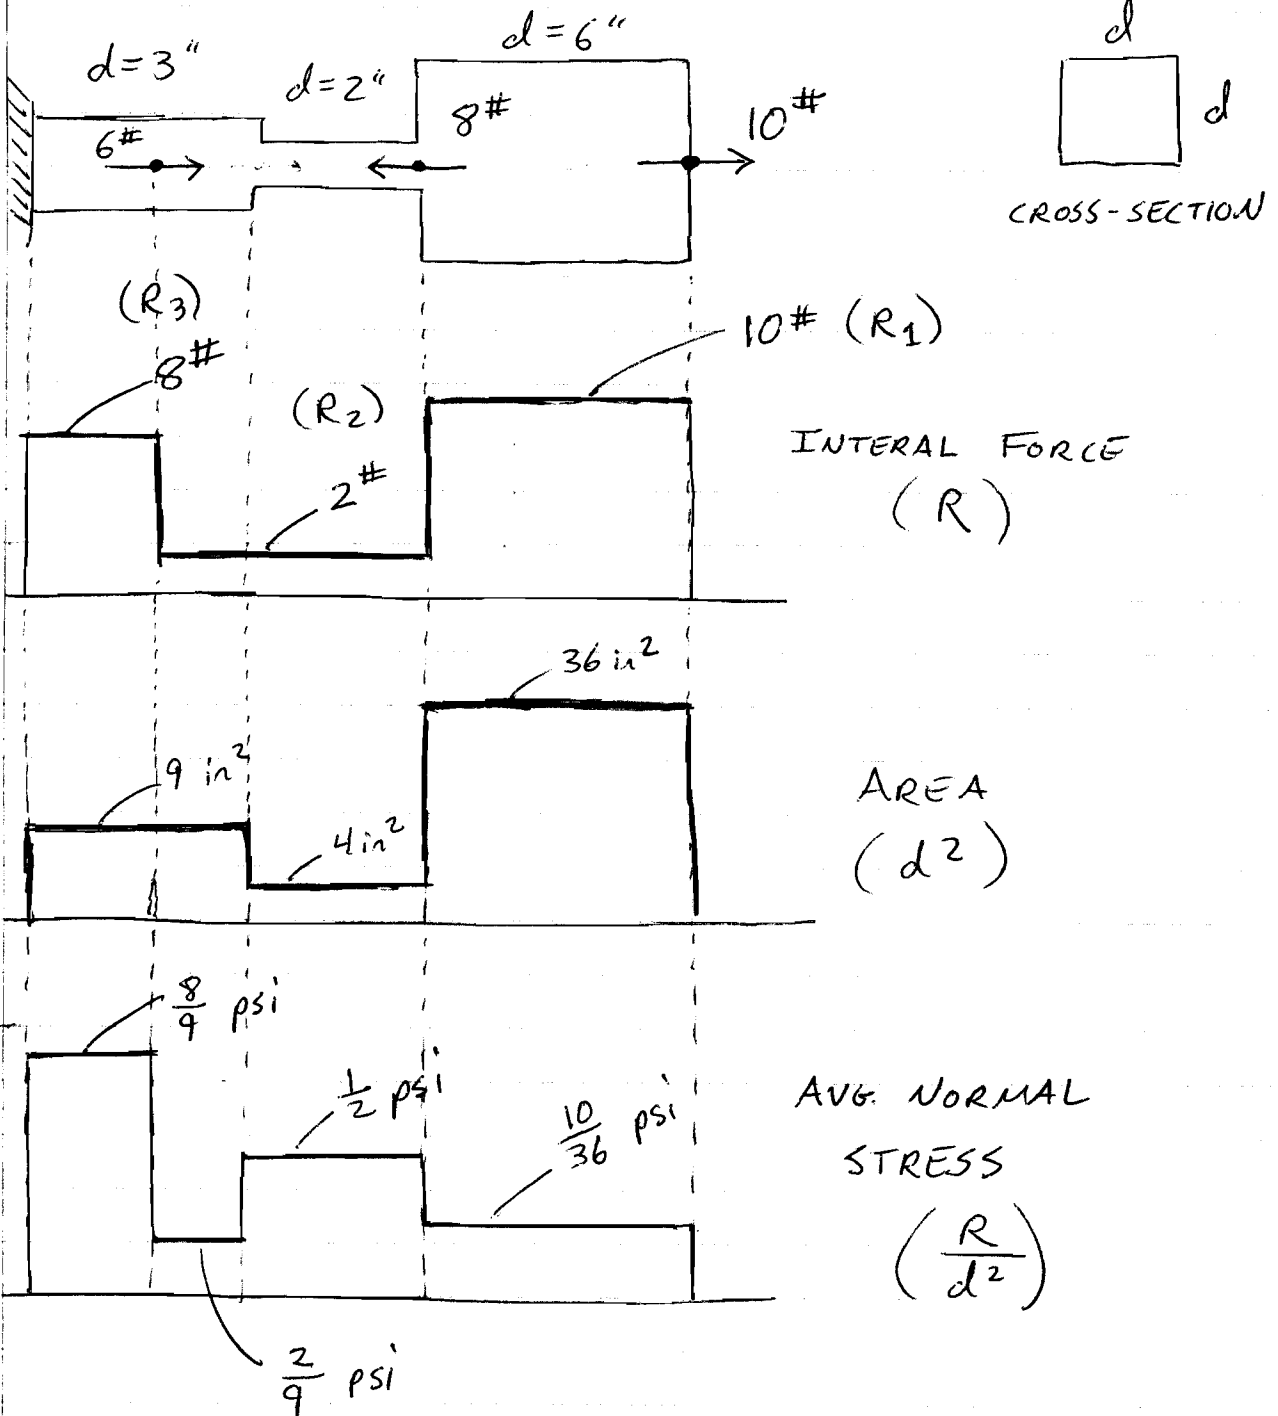 d = 3"
d = 2"
d = 6"
d
d
6#
8#
10#
CROSS-SECTION
(R3)
8#
(R2)
2#
10# (R1)
INTERAL FORCE
(R)
36 in²
9 in²
4 in²
AREA
(d²)
8/9 psi
1/2 psi
10/36 psi
2/9 psi
AVG. NORMAL
STRESS
(R/d²)